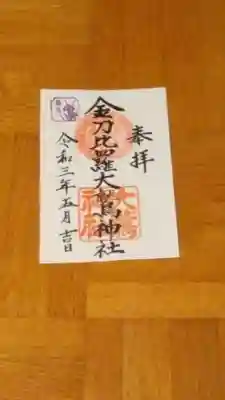 奉拝
金刀比羅大鷲神社
令和三年五月吉日